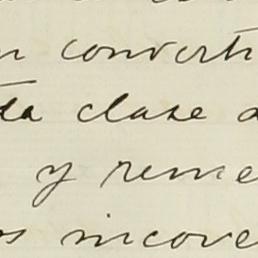 n converti
ta clase d
y reme
os incove